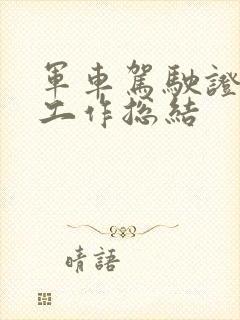 軍車駕駛證
工作总結
晴語